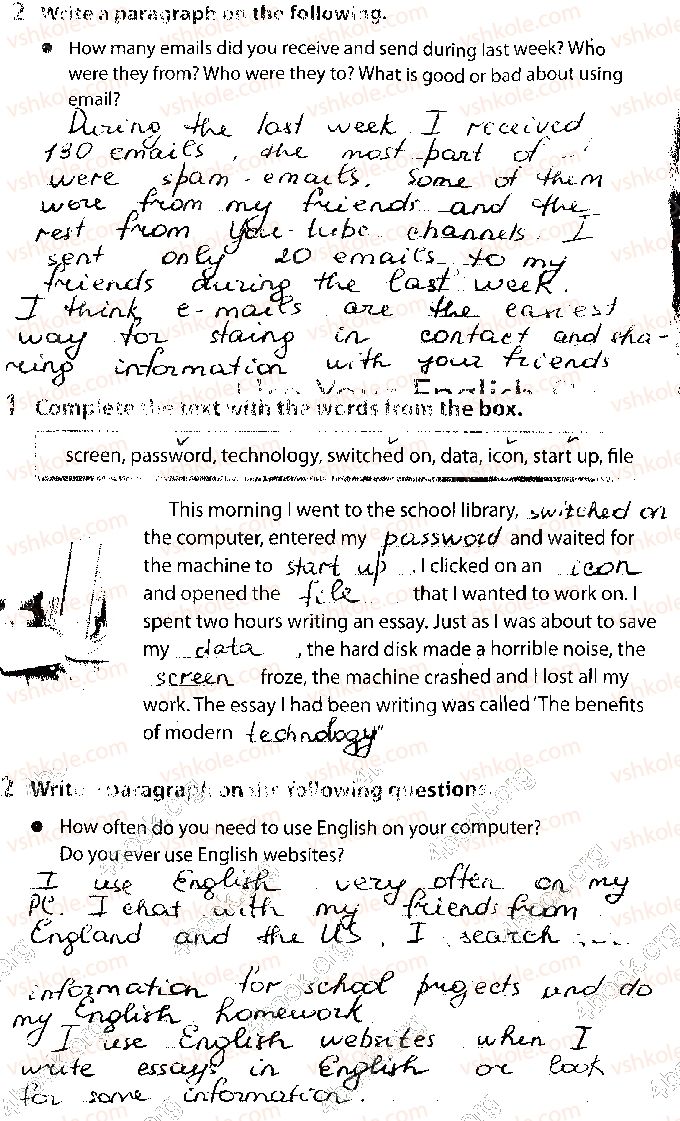 2 Write a paragraph on the following.
• How many emails did you receive and send during last week? Who
were they from? Who were they to? What is good or bad about using
email?
During the last week I received
130 emails, the most part of
were spam-emails. Some of them
were from my friends and the
rest from You-tube channels. I
sent only 20 emails to my
friends during the last week.
I think e-mails are the easiest
way for staing in contact and sha-
ring information with your friends
1 Complete the text with the words from the box.
screen, password, technology, switched on, data, icon, start up, file
This morning I went to the school library, switched on
the computer, entered my password and waited for
the machine to start up. I clicked on an icon
and opened the file that I wanted to work on. I
spent two hours writing an essay. Just as I was about to save
my data, the hard disk made a horrible noise, the
screen froze, the machine crashed and I lost all my
work. The essay I had been writing was called 'The benefits
of modern technology"
2 Write a paragraph on the following questions.
• How often do you need to use English on your computer?
Do you ever use English websites?
I use English very often on my
PC. I chat with my friends from
England and the US, I search
information for school progects and do
my English homework
I use English websites when I
write essays in English or look
for some information.